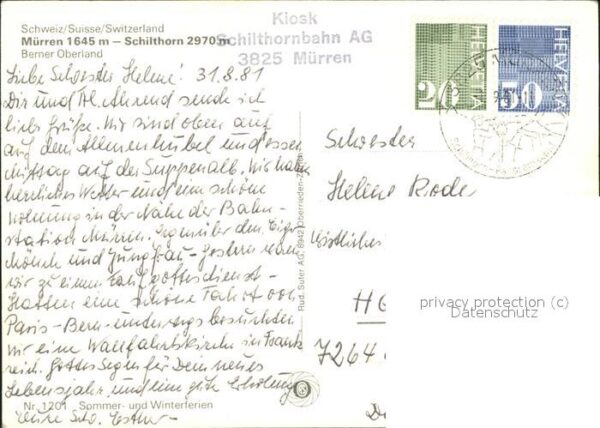 Schweiz/Suisse/Switzerland
Mürren 1645 m — Schilthorn 2970 m
Berner Oberland
Kiosk
Schilthornbahn AG
3825 Mürren
HELVETIA
20
HELVETIA
50
Liebe Schwester Helene! 31.8.81
Dir und Fr. sende ich
liebe Grüße. Wir sind oben auf
auf dem Allmenhubel und essen
Mittag auf der Suppenalb. Wir haben
herrliches Wetter und eine schöne
Wohnung in der Nähe der Bahn-
station Mürren. Gegenüber dem Eiger
Mönch und Jungfrau - Gestern waren
wir zu einem Gottesdienst -
Hatten eine schöne Fahrt von
Paris - Bern - unterwegs besuchten
wir eine Wallfahrtskirche in Frank
reich. Gottes Segen für Dein neues
Lebensjahr, und eine gute Erholung
Schw. Esther -
Nr. 1201 Sommer- und Winterferien
Rud. Suter AG, 8942 Oberrieden-Zürich
Schwester
Helene Rode
HG
7264
privacy protection (c)
Datenschutz